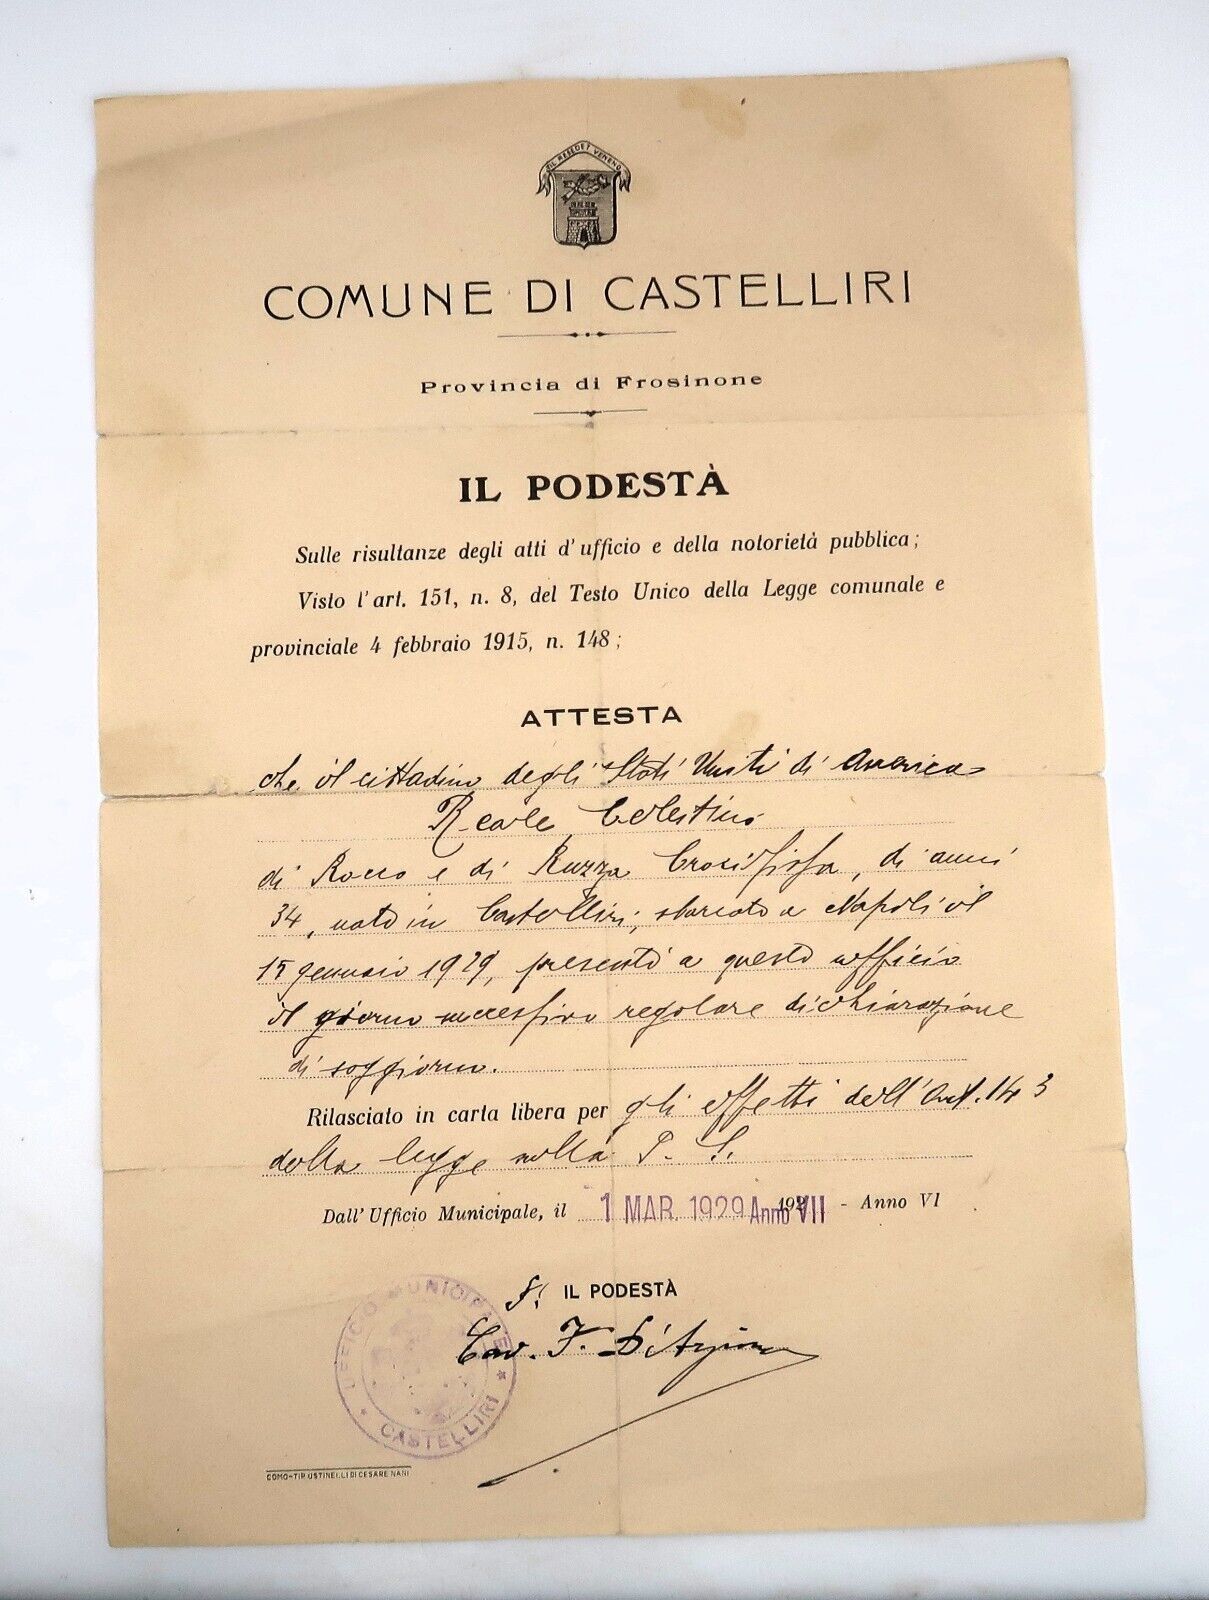 COMUNE DI CASTELLIRI
Provincia di Frosinone
IL PODESTÀ
Sulle risultanze degli atti d'ufficio e della notorietà pubblica;
Visto l'art. 151, n. 8, del Testo Unico della Legge comunale e
provinciale 4 febbraio 1915, n. 148;
ATTESTA
che il cittadino degli Stati Uniti di America
Reale Celestino
di Rocco e di Ruzza Crocifissa, di anni
34, nato in Castelliri, sbarcato a Napoli il
15 gennaio 1929, presentò a questo ufficio
il giorno successivo regolare dichiarazione
di soggiorno.
Rilasciato in carta libera per gli effetti dell'Art. 143
della legge sulla P. S.
Dall'Ufficio Municipale, il 1 MAR. 1929 Anno VII 192 - Anno VI
f. IL PODESTÀ
Cav. F.
UFFICIO MUNICIPALE
* CASTELLIRI *
COMO-TIP. USTINELLI DI CESARE NANI